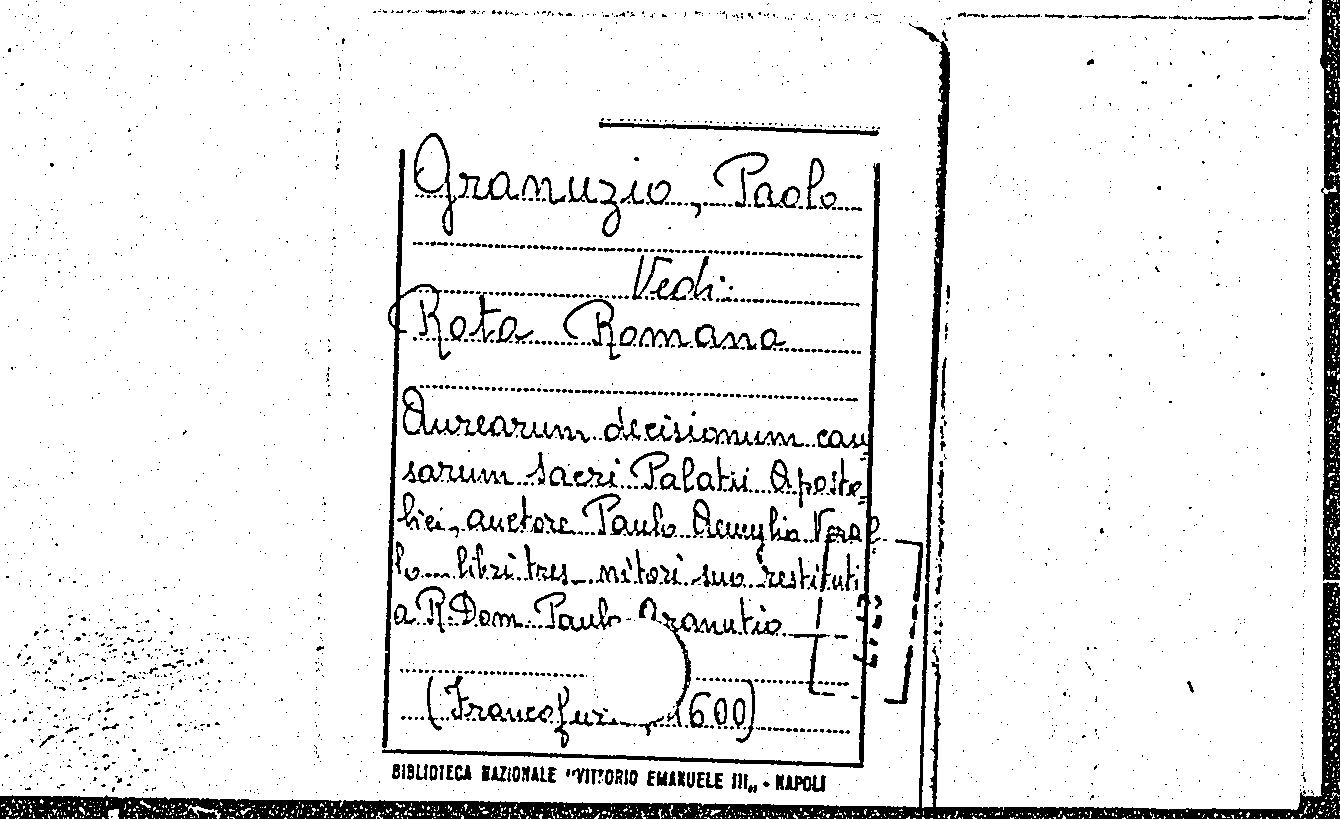 Granuzio, Paolo
Vedi:
Rota Romana
Aurearum decisionum cau
sarum sacri Palatii Aposto-
lici, auctore Paulo Aemylio Veral
lo... libri tres_ nitori suo restituti
a R. Dom. Paulo Granutio
(Francofurti, 1600)
BIBLIOTECA NAZIONALE "VITTORIO EMANUELE III„ - NAPOLI